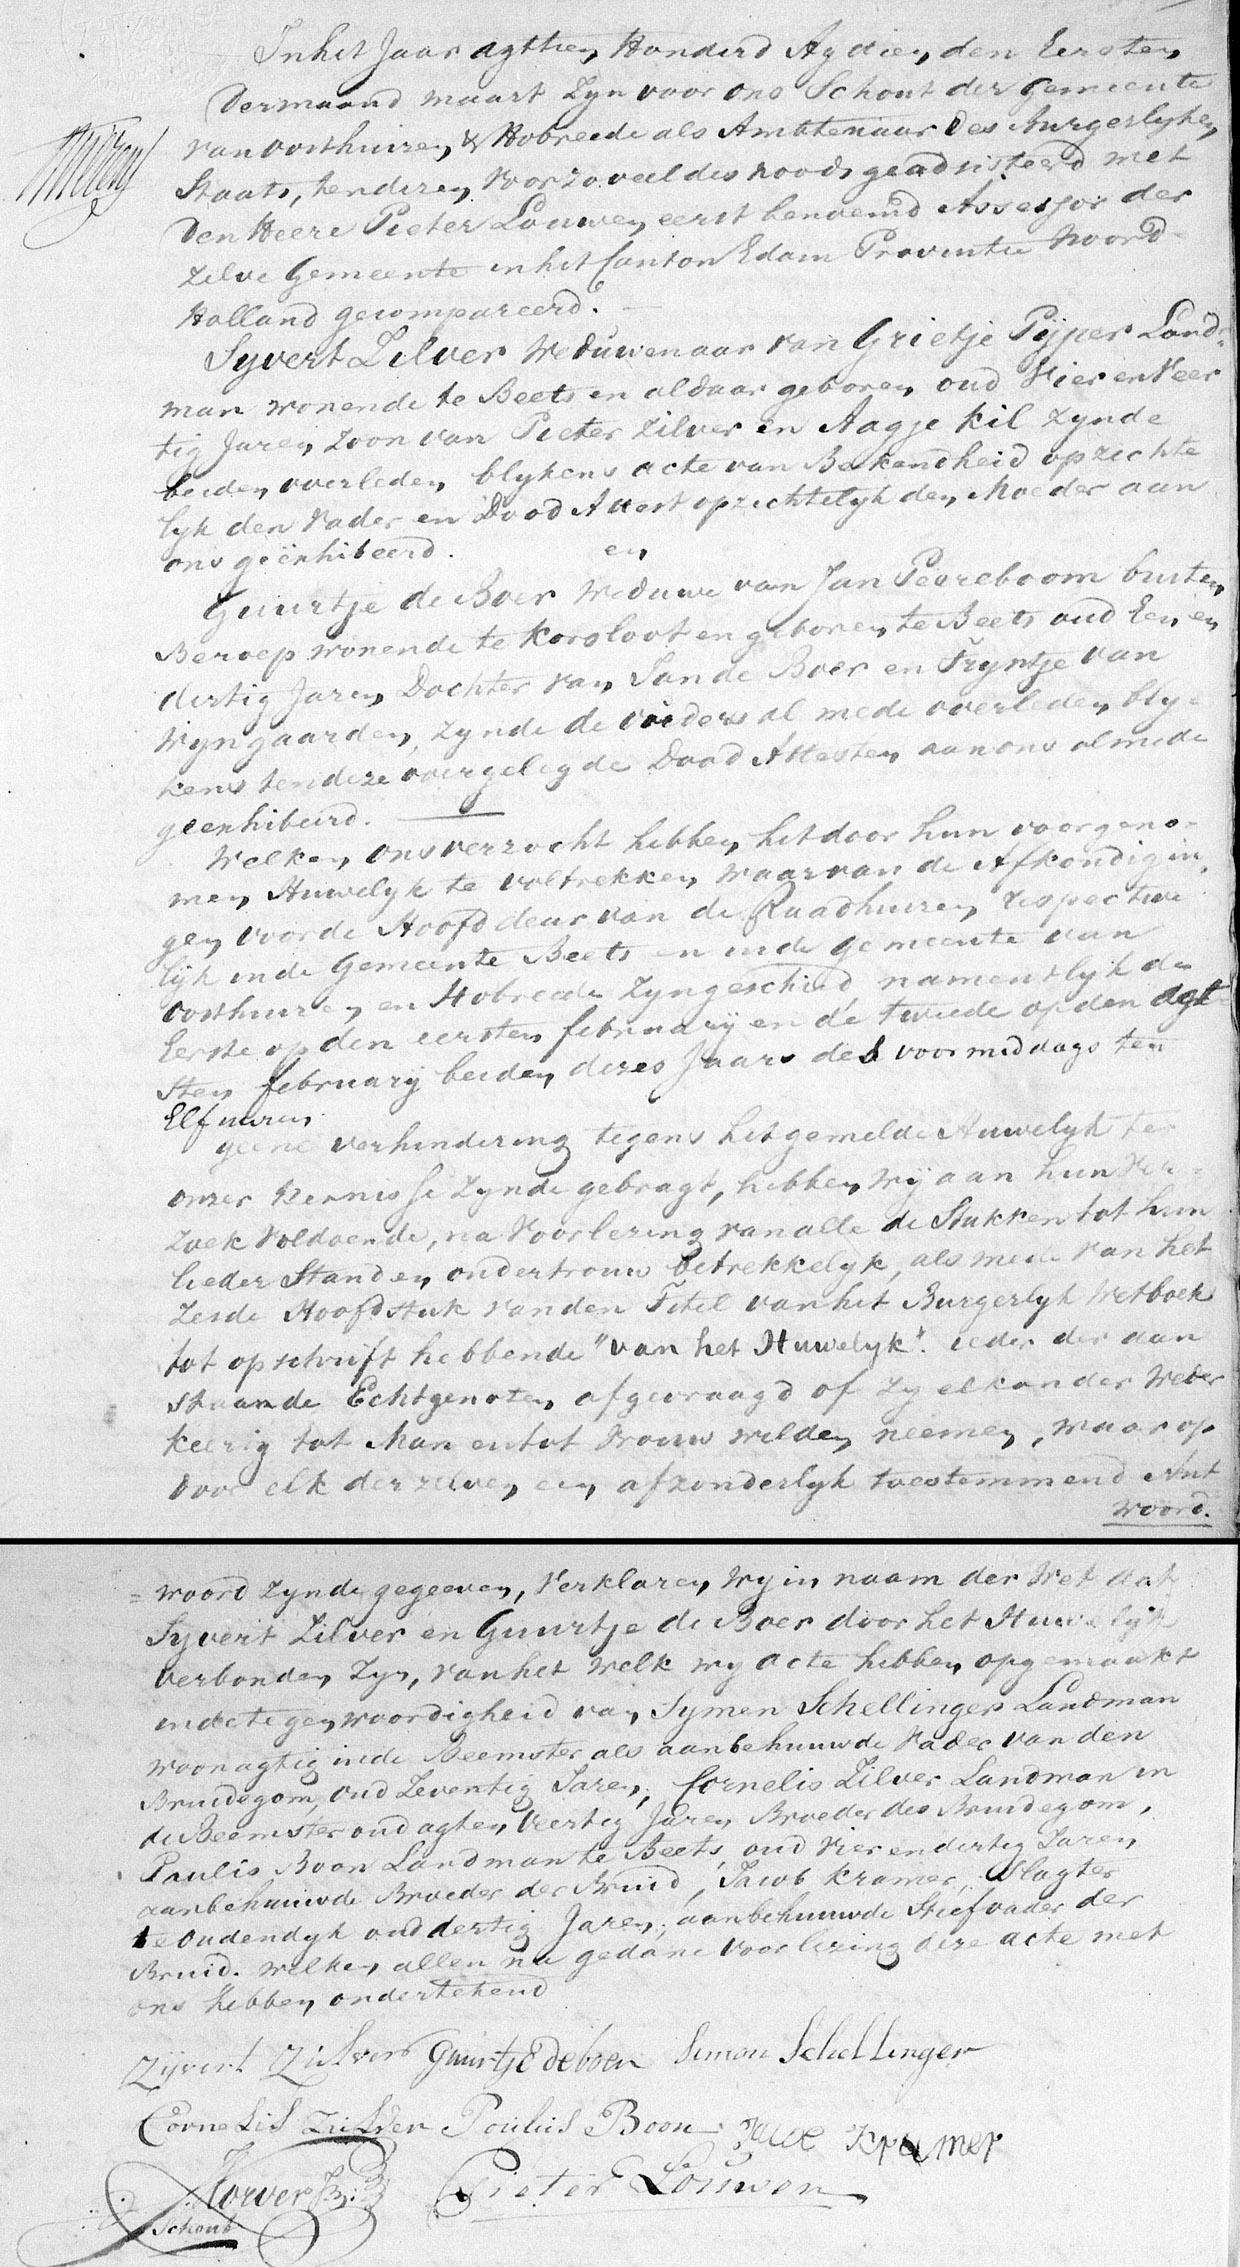 In het Jaar agttien Honderd Agttien, den Eersten
Der maand maart Zyn voor ons Schout der Gemeente
van oosthuizen & Hobreede als Ambtenaar des Burgerlyken
Staats, ten dezen, voor zo veel des noods geadsisteerd met
Den Heere Pieter Louwen, eerst benoemd Assessor der
zelve Gemeente in het Canton Edam Provintie Noord
Holland gecompareerd.
Syvert Zilver Weduwenaar van Grietje Pyper Land=
man wonende te Beets en aldaar geboren oud Vier en Veer
tig Jaren, Zoon van Pieter Zilver en Aagje Kil zynde
beiden overleden, blykens acte van Bekendheid opzichte
lyk den Vader en Dood Attest opzichtelyk den Moeder aan
ons geëxhibeerd. en
Guurtje de Boer Weduwe van Jan Peereboom buiten
Beroep wonende te Korsloot en geboren te Beets oud Een en
dertig Jaren, Dochter van Jan de Boer en Tryntje van
Wyngaarden, Zynde de ouders al mede overleden, bly=
kens ten deze overgelegde Dood Attesten aan ons almede
geexhibeerd.
Welken, ons verzocht hebben, het door hun voorgeno=
men Huwelyk te voltrekken, waarvan de Afkondigin=
gen voor de Hoofd deur van de Raadhuizen, respective
lyk in de Gemeente Beets en in de gemeente van
Oosthuizen en Hobreede Zyn geschied namentlyk de
Eerste op den eersten february en de tweede op den agt
sten february beiden dezes Jaars des voormiddags ten
Elf uuren
geene verhindering tegens het gemelde Huwelyk ter
onzer Kennisse Zynde gebragt, hebben Wy aan hun Ver=
zoek Voldoende, na Voorlezing van alle de Stukken tot hun
lieder Stand en ondertrouw betrekkelyk, als mede van het
Zesde Hoofdstuk van den Titel van het Burgerlyk Wetboek
tot opschrift hebbende "van het Huwelyk". ieder der aan
staande Echtgenoten, afgevraagd of Zy elkander Weder
keerig tot Man en tot Vrouw wilden neemen, waar op
door elk derzelven, een afzonderlyk toestemmend Ant
woord.
= woord Zynde gegeeven, Verklaren Wy in naam der Wet dat
Syvert Zilver en Guurtje de Boer door het Huwelyk
verbonden Zyn, van het welk wy acte hebben opgemaakt
in de tegenwoordigheid van Symen Schellinger Landman
woonagtig in de Beemster als aanbehuuwde Vader van den
Bruidegom, oud Zeventig Jaren, Cornelis Zilver Landman in
de Beemster oud agt en Veertig Jaren Broeder des Bruidegom,
Paulis Boon Landman te Beets, oud Vier en dertig Jaren
aanbehuuwde Broeder der Bruid, Jacob Kramer, Slagter
te Oudendyk oud dertig Jaren, aanbehuuwde Stiefvader der
Bruid. welken, allen na gedane voorlezing deze acte met
ons hebben ondertekend
Zijvert Zilver Guurtje de boer Simon Schellinger
Cornelis Zilver Poulus Boon Kramer
Schout Pieter Louwen